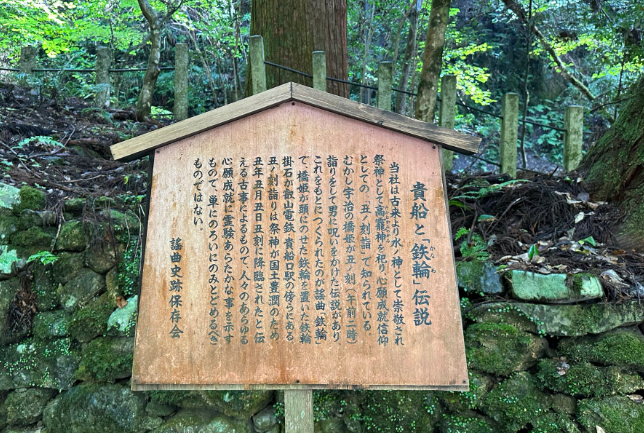 貴船と「鉄輪」伝説
かなわ
当社は古来より水ノ神として崇敬され
祭神として高龗神を祀り心願成就信仰
としての「丑ノ刻詣」で知られている。
むかし宇治の橋姫が丑ノ刻(午前二時)
詣りをして男に呪いをかけた伝説があり
これをもとにつくられたのが謡曲「鉄輪」
で、橋姫が頭にのせた鉄輪を
掛石が叡山電鉄・貴船口駅の傍らにある。
丑ノ刻詣りは祭神が国土豊潤のため
丑年丑月丑日丑刻に降臨されたと伝
える古事によるもので、人々のあらゆる
心願成就に霊験あらたかな事を示す
もので、単にのろいにのみとどめるべき
ものではない。
謡曲史跡保存会